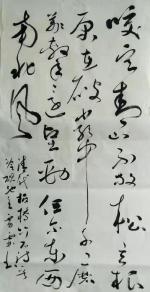 咬定青山不放松立根
原在破岩中千磨
万击还坚劲任尔东西
南北风
清代板桥竹石诗